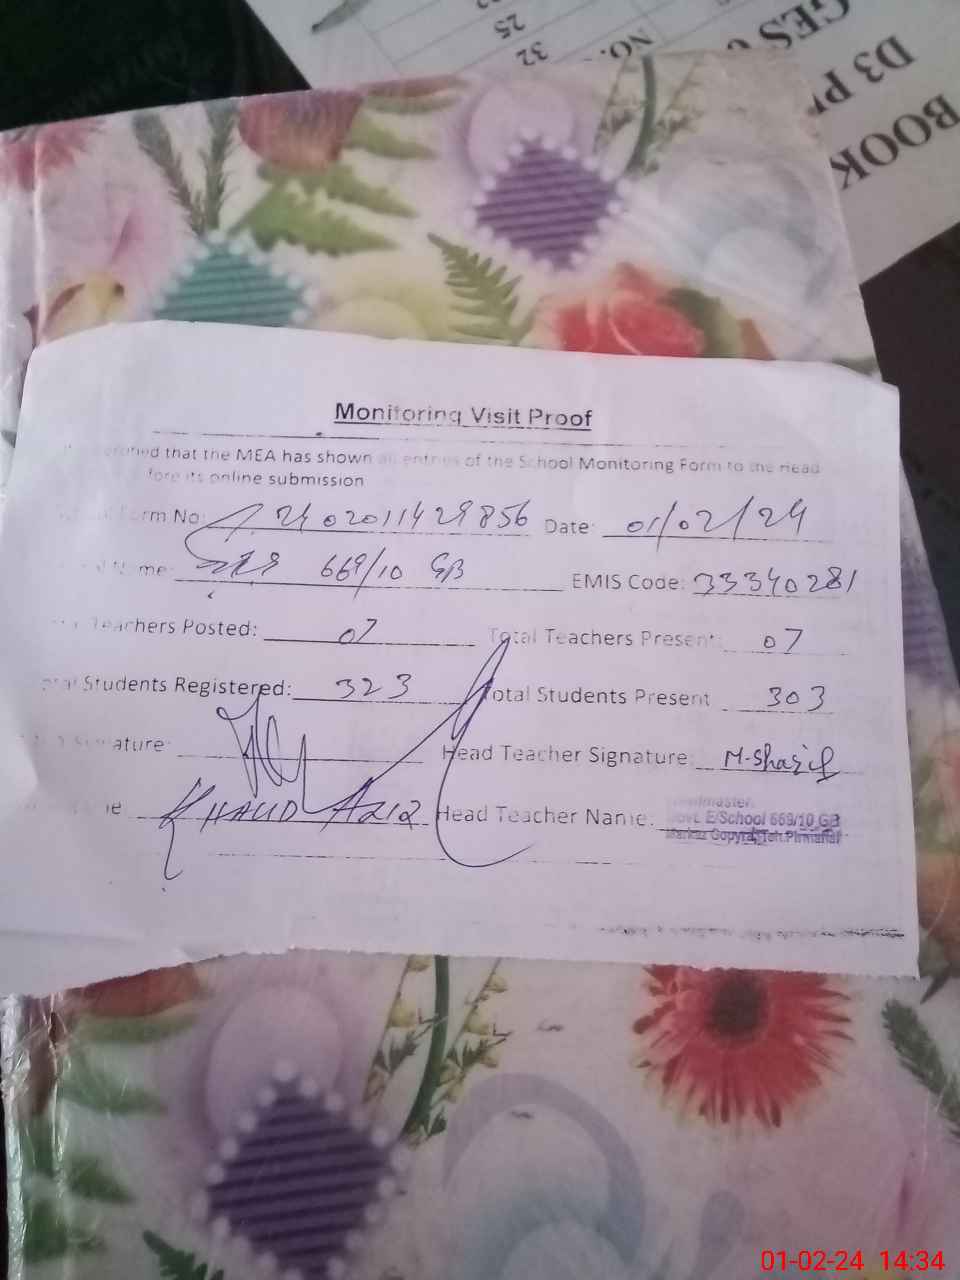 32
25
NO.
GES
D3 P
BOOK
Monitoring Visit Proof
that the MEA has shown all entries of the School Monitoring Form to the Head
fore its online submission
Form No: 2402011429856 Date: 01/02/24
Name: 669/10 GB EMIS Code: 33340281
Teachers Posted: 07 Total Teachers Present: 07
Total Students Registered: 323 Total Students Present 303
Signature: Head Teacher Signature: M-Sharif
KHALID AZIZ Head Teacher Name: Headmaster
Govt. E/School 669/10 GB
Markaz Teh. Pirmahal
01-02-24 14:34